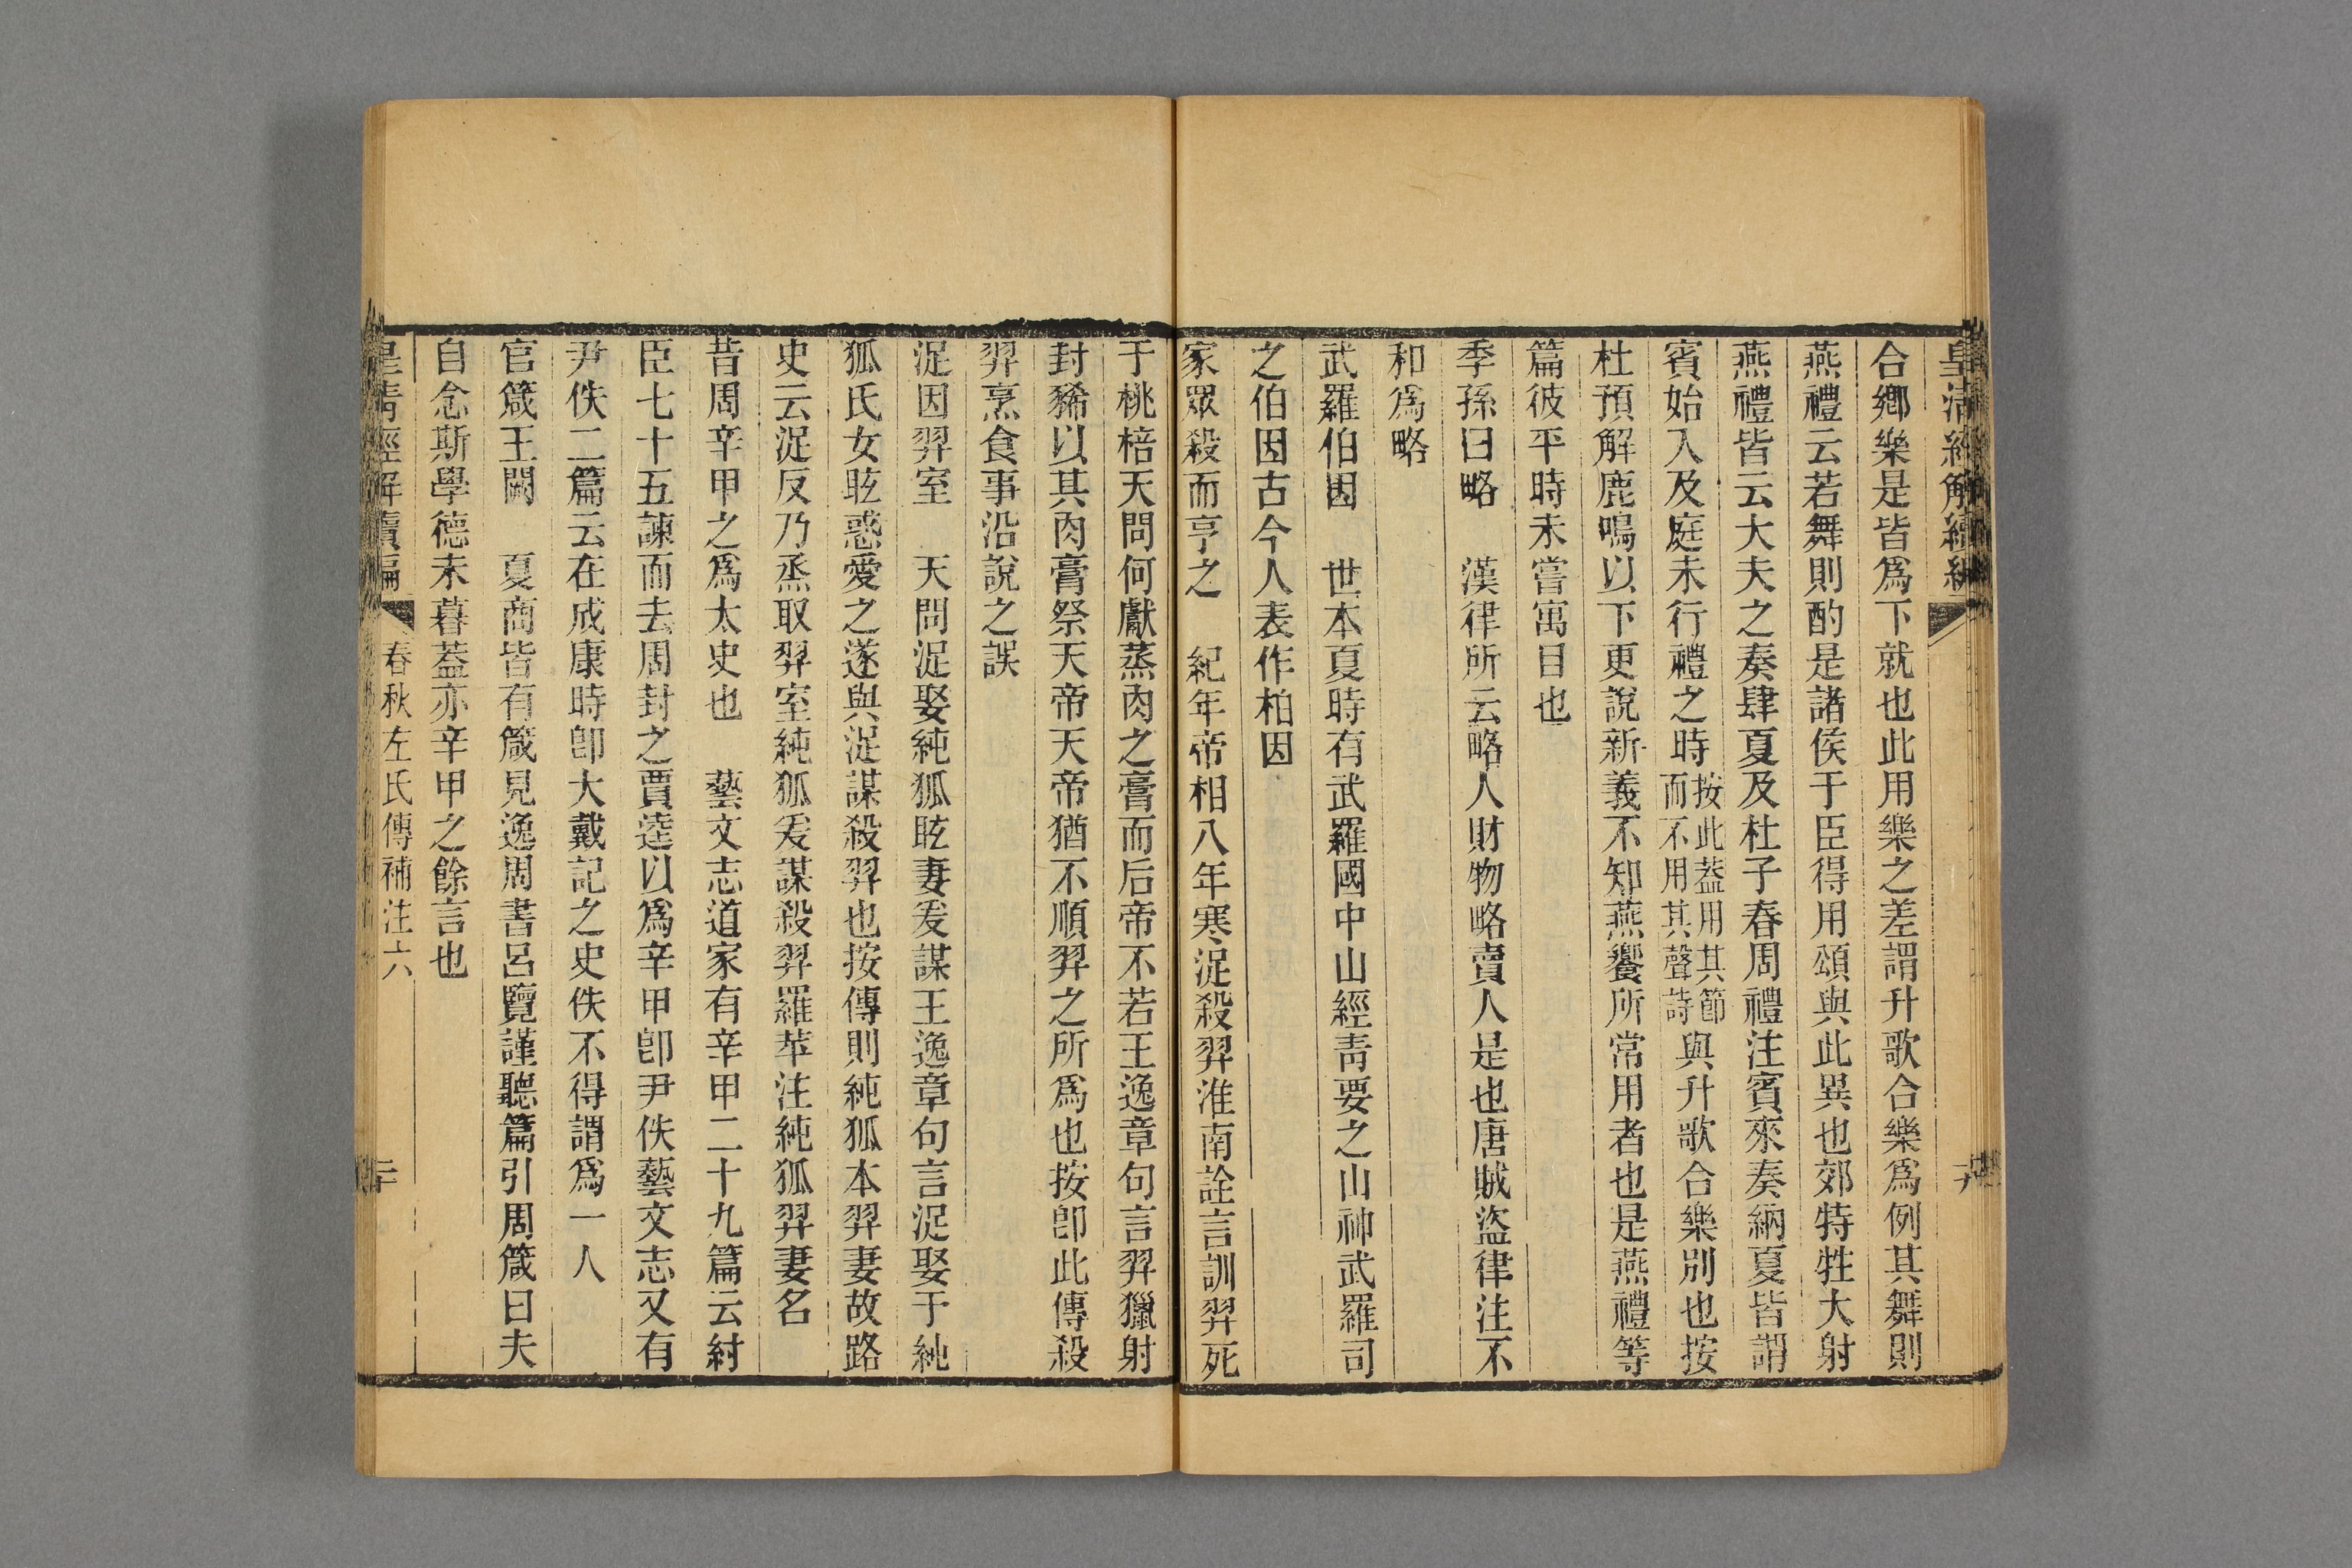 皇清經解續編
合鄉樂是皆爲下就也此用樂之差謂升歌合樂爲例其舞則
燕禮云若舞則酌是諸侯于臣得用頌與此異也郊特牲大射
燕禮皆云大夫之奏肆夏及杜子春周禮注賓來奏納夏皆謂
賓始入及庭未行禮之時按此葢用其節而不用其聲詩與升歌合樂別也按
杜預解鹿鳴以下更說新義不知燕饗所常用者也是燕禮等
篇彼平時未嘗寓目也
季孫曰略　漢律所云略人財物略賣人是也唐賊盜律注不
和爲略
武羅伯因　世本夏時有武羅國中山經靑要之山神武羅司
之伯因古今人表作柏因
家眾殺而亨之　紀年帝相八年寒浞殺羿淮南詮言訓羿死
于桃棓天問何獻蒸肉之膏而后帝不若王逸章句言羿獵射
封豨以其肉膏祭天帝天帝猶不順羿之所爲也按卽此傳殺
羿烹食事沿說之誤
浞因羿室　天問浞娶純狐眩妻爰謀王逸章句言浞娶于純
狐氏女眩惑愛之遂與浞謀殺羿也按傳則純狐本羿妻故路
史云浞反乃烝取羿室純狐爰謀殺羿羅苹注純狐羿妻名
昔周辛甲之爲太史也　藝文志道家有辛甲二十九篇云紂
臣七十五諫而去周封之賈逵以爲辛甲卽尹佚藝文志又有
尹佚二篇云在成康時卽大戴記之史佚不得謂爲一人
官箴王闕　夏商皆有箴見逸周書呂覽謹聽篇引周箴曰夫
自念斯學德未暮葢亦辛甲之餘言也
皇清經解續編　春秋左氏傳補注六　二十